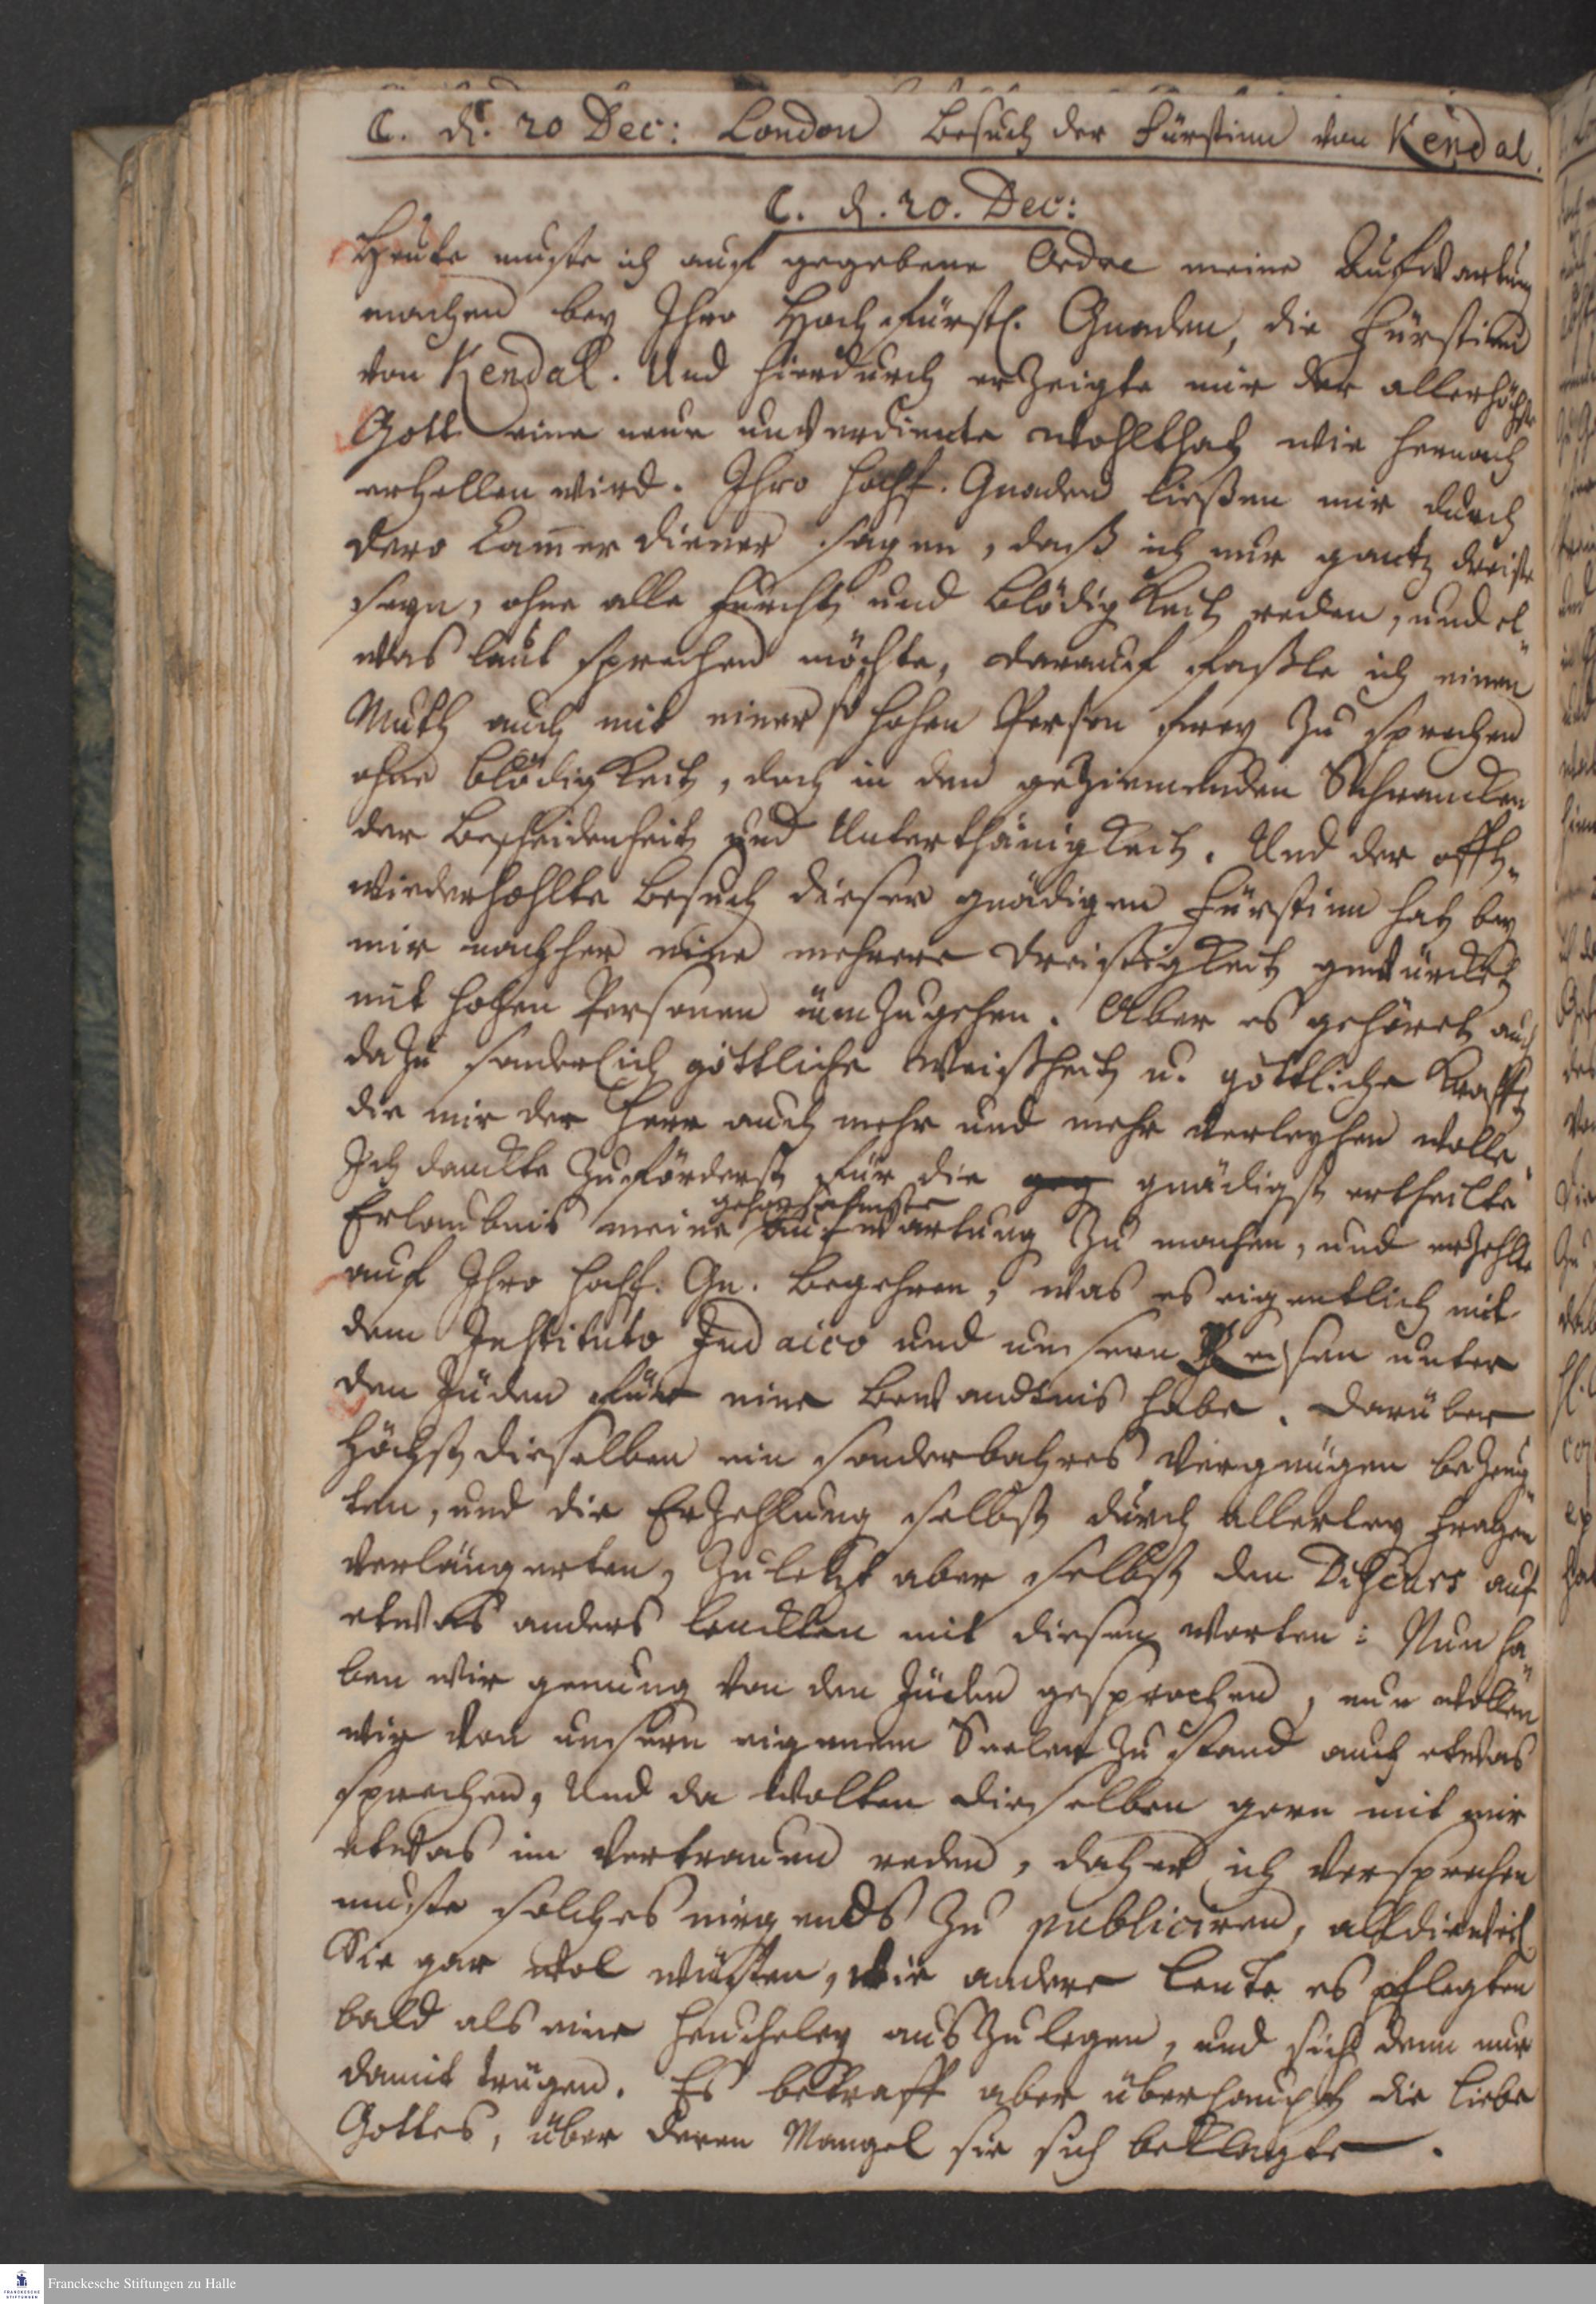 ☾. d. 20 Dec: London Besuch der Fürstinn von Kendal.
☾. d. 20. Dec:
Heute muste ich auf gegebene Ordre meine Aufwartung
machen bey Ihro Hochfürstl. Gnaden, die Fürstinn
von Kendal. Und hierdurch erzeigte mir der allerhöchste
Gott eine neue unverdiente wohlthat wie hernach
erhellen wird. Ihro Hochf. Gnaden ließen mir durch
dero Cam̅er diener sagen, daß ich nur gantz dreiste
seyn, ohne alle Furcht und Blödigkeit reden, und et„
was laut sprechen möchte, darauf faßte ich einen
Muth auch mit einer so hohen Person frey zu sprechen
ohne Blödigkeit, doch in den geziemenden Schrancken
der Bescheidenheit und Unterthänigkeit. Und der offt„
wiederhohlte Besuch dieser gnädigen Fürstinn hat bey
mir nachher eine mehrere Dreistigkeit gewürcket
mit hohen Personen umzugehen. Aber es gehöret auch
dazu sonderlich göttliche Weißheit u. göttliche Krafft
die mir der Herr auch mehr und mehr verleyhen wolle.
Ich danckte zuförderst für die gnädigst ertheilte
gehorsahmste
Erlaubnis meine Aufwartung zu machen, und erzehlte
auf Ihro Hochf. Gn. Begehren, was es eigentlich mit
dem Instituto Judaico und unsern Reisen unter
den Jüden für eine Bewandtnis habe. Darüber
Höchst dieselben ein sonderbahres Vergnügen bezeug„
ten, und die Erzehlung selbst durch allerley Fragen
verlängerten, zuletzt aber selbst den Discurs auf
etwas anders lenckten mit diesen Worten: Nun ha„
ben wir genung von den Jüden gesprochen, nun wollen
wir von unsern eigenem Seelen Zustand auch etwas
sprechen, Und da wolten dieselben gern mit mir
etwas im Vertrauen reden, daher ich versprechen
muste solches nirgends zu publiciren, alldieweil
Sie gar wol wüsten, wie andere Leute es pflegten
bald als eine Heucheley auszulegen, und sich denn nur
damit trügen. Es betraff aber überhaupt die Liebe
Gottes, über deren Mangel sie sich beklagte.
Franckesche Stiftungen zu Halle